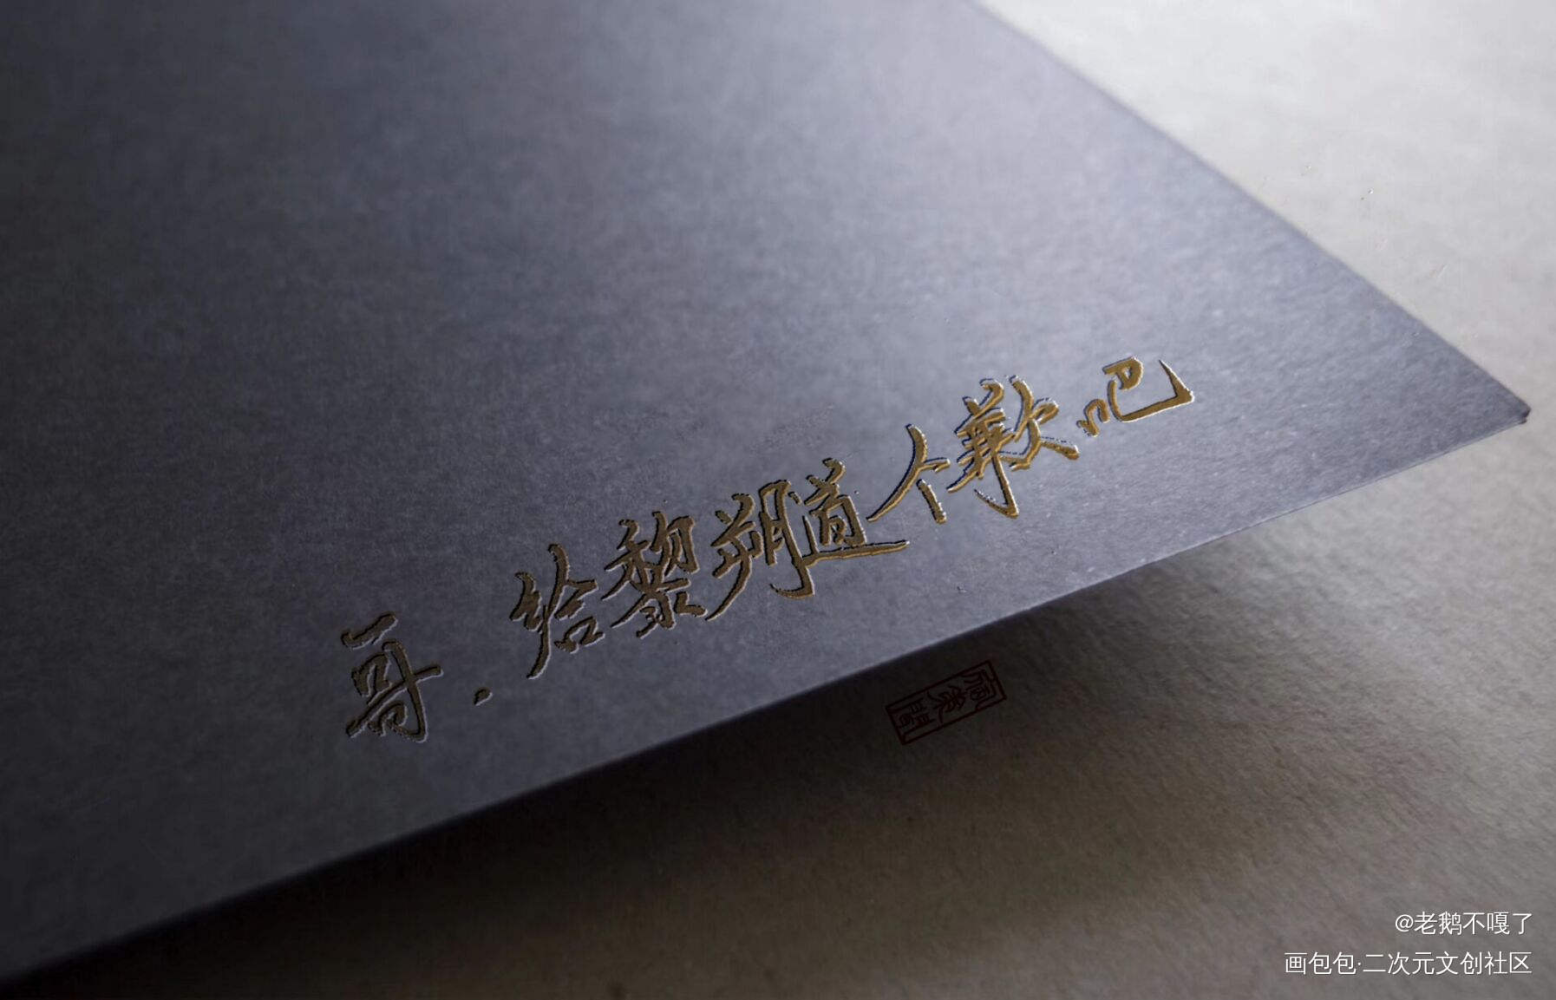 哥．给黎朔道个歉吧
@老鹅不嘎了
画包包·二次元文创社区